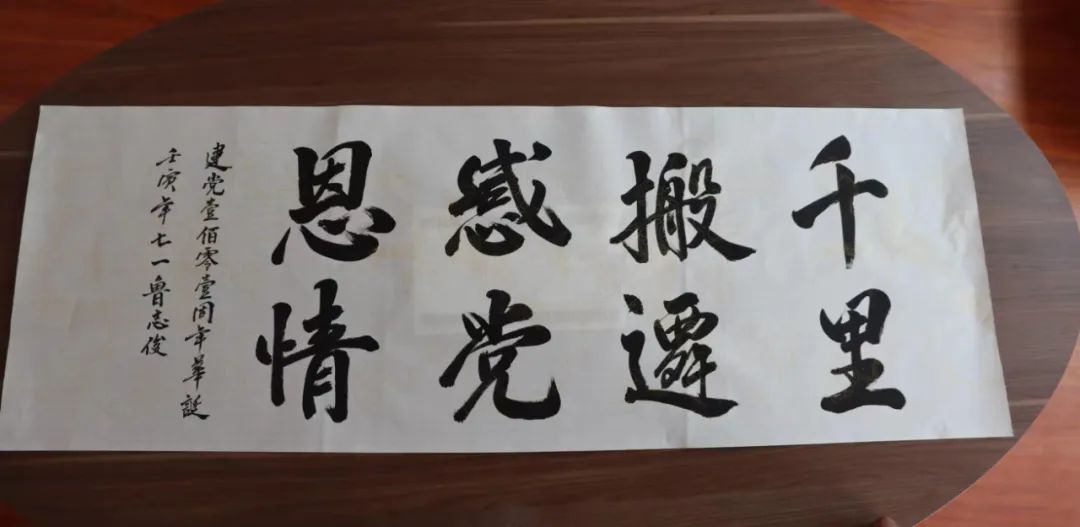 千里
搬遷
感党
恩情
建党壹佰零壹周年華誕
壬寅年七一魯志俊